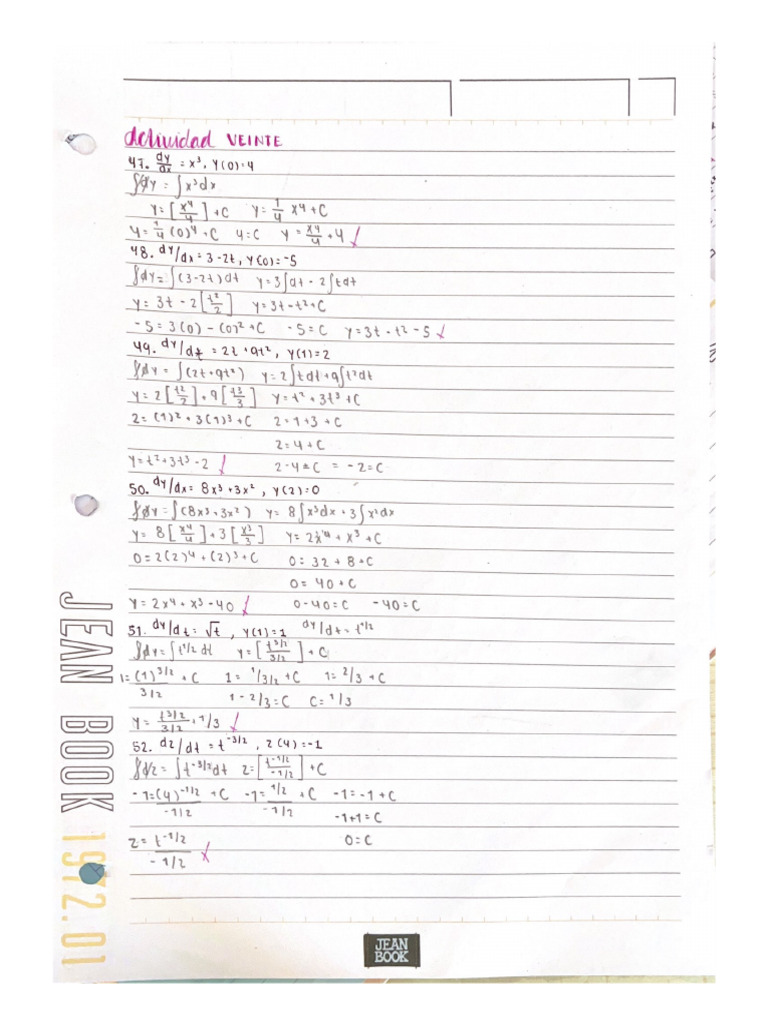 Actividad VEINTE
47. dy/dx = x³, y(0)=4
∫dy = ∫x³dx
y=[x⁴/4]+C y=1/4 x⁴+C
4=1/4(0)⁴+C 4=C y=x⁴/4+4
48. dy/dx=3-2t, y(0)=-5
∫dy=∫(3-2t)dt y=3∫dt-2∫tdt
y=3t-2[t²/2] y=3t-t²+C
-5=3(0)-(0)²+C -5=C y=3t-t²-5
49. dy/dt=2t+9t², y(1)=2
∫dy=∫(2t+9t²) y=2∫tdt+9∫t²dt
y=2[t²/2]+9[t³/3] y=t²+3t³+C
2=(1)²+3(1)³+C 2=1+3+C
2=4+C
y=t²+3t³-2 2-4=C = -2=C
50. dy/dx=8x³+3x², y(2)=0
∫dy=∫(8x³+3x²) y=8∫x³dx+3∫x²dx
y=8[x⁴/4]+3[x³/3] y=2x⁴+x³+C
0=2(2)⁴+(2)³+C 0=32+8+C
0=40+C
y=2x⁴+x³-40 0-40=C -40=C
51. dy/dt=√t, y(1)=1 dy/dt=t^1/2
∫dy=∫t^1/2 dt y=[t^3/2 / 3/2]+C
1=(1)^3/2 / 3/2 +C 1=1/3/2+C 1=2/3+C
1-2/3=C C=1/3
y=t^3/2 / 3/2 +1/3
52. dz/dt=t^-3/2, z(4)=-1
∫dz=∫t^-3/2 dt z=[t^-1/2 / -1/2]+C
-1=(4)^-1/2 / -1/2 +C -1=1/2 / -1/2 +C -1=-1+C
-1+1=C
z=t^-1/2 / -1/2 0=C
JEAN BOOK 1972.01
JEAN
BOOK